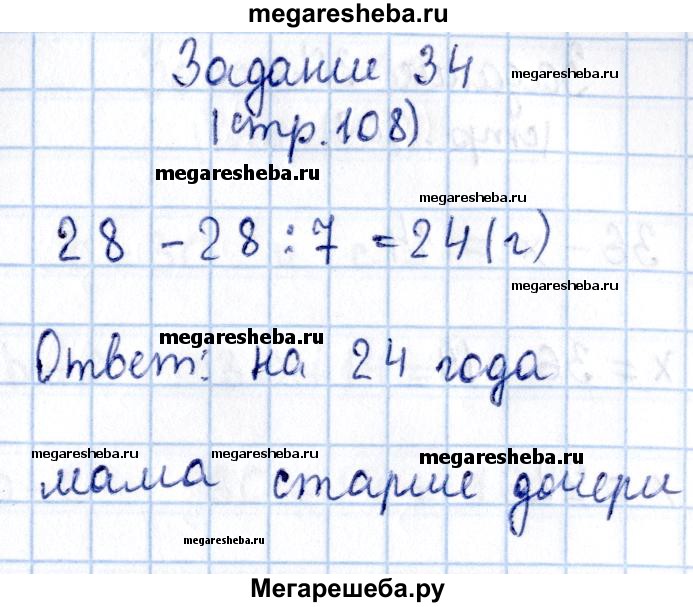 megaresheba.ru
Задание 34
megaresheba.ru
(стр. 108)
megaresheba.ru
megaresheba.ru
28 - 28 : 7 = 24 (г)
megaresheba.ru
megaresheba.ru
Ответ: на 24 года
megaresheba.ru megaresheba.ru megaresheba.ru
мама старше дочери
megaresheba.ru
Мегарешеба.ру